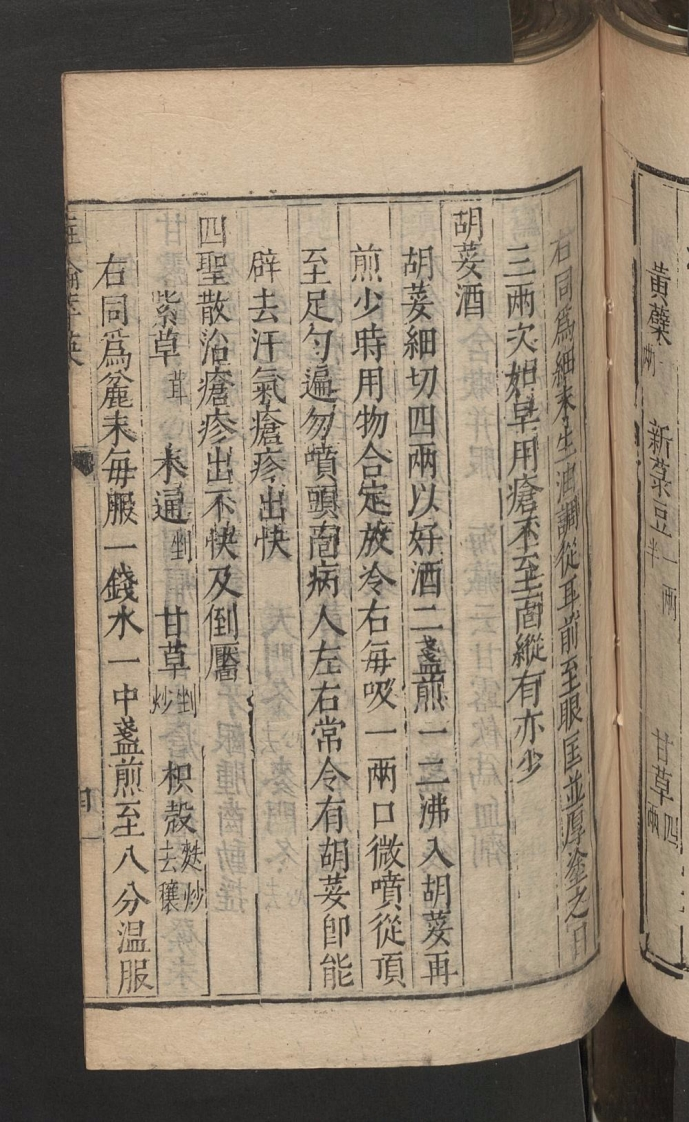 黄蘗一兩　新菉豆一兩半　甘草四兩
右同爲細末生油調從耳前至眼匡並厚塗之日
三兩次如早用瘡不至面縱有亦少
胡荽酒
胡荽細切四兩以好酒二盞煎一二沸入胡荽再
煎少時用物合定放冷右每吸一兩口微噴從項
至足勻遍勿噴頭面病人左右常令有胡荽卽能
辟去汗氣瘡疹出快
四聖散治瘡疹出不快及倒黶
紫草茸　木通剉　甘草剉炒　枳殻麩炒去穰
右同爲麄末每服一錢水一中盞煎至八分温服